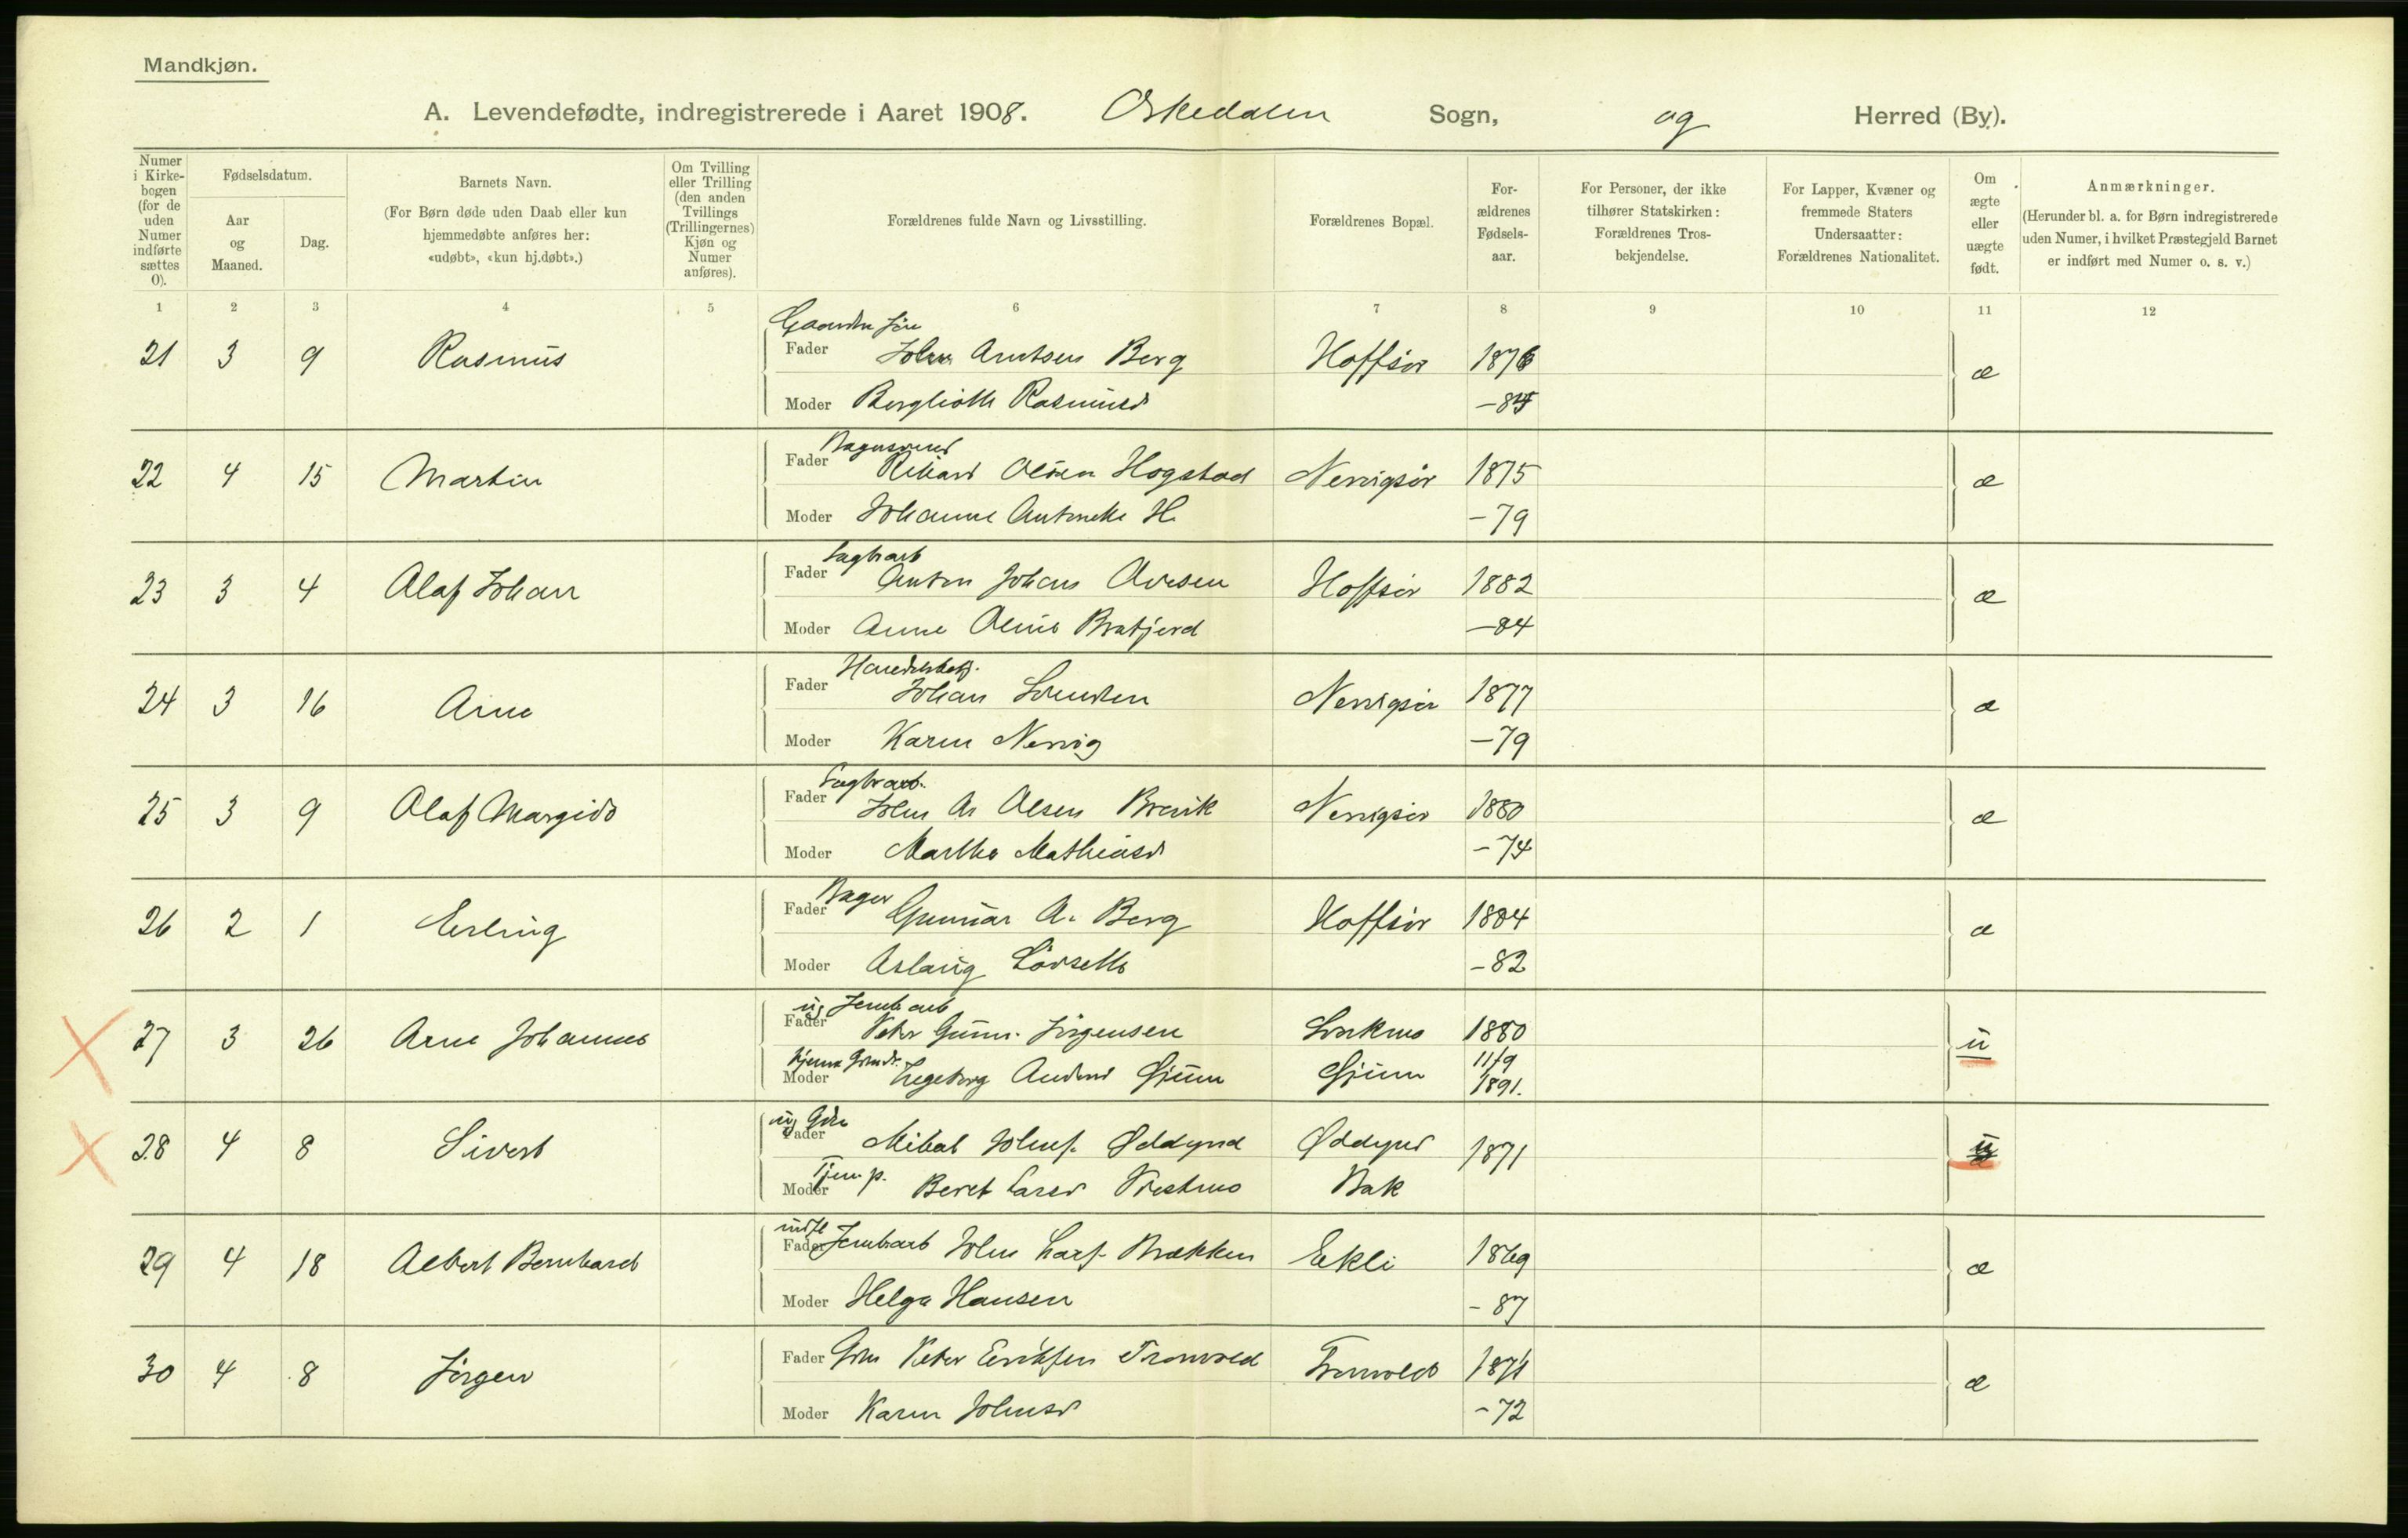 Mandkjøn.
A. Levendefødte, indregistrerede i Aaret 1908. Orkedalen Sogn, og Herred (By).
Numer i Kirkebogen (for de uden Numer indførte sættes 0).
Fødselsdatum.
Aar og Maaned.
Dag.
Barnets Navn.
(For Børn døde uden Daab eller kun hjemmedøbte anføres her: «udøbt», «kun hj.døbt».)
Om Tvilling eller Trilling (den anden Tvillings (Trillingernes) Kjøn og Numer anføres).
Forældrenes fulde Navn og Livsstilling.
Forældrenes Bopæl.
Forældrenes Fødselsaar.
For Personer, der ikke tilhører Statskirken: Forældrenes Trosbekjendelse.
For Lapper, Kvæner og fremmede Staters Undersaatter: Forældrenes Nationalitet.
Om ægte eller uægte født.
Anmærkninger.
(Herunder bl. a. for Børn indregistrerede uden Numer, i hvilket Præstegjeld Barnet er indført med Numer o. s. v.)
1 2 3 4 5 6 7 8 9 10 11 12
21 3 9 Rasmus Fader John Arntsen Berg Hoffsør 1876 æ
Moder Bergliotte Rasmusd -84
22 4 15 Martin Fader Rikard Olsen Hogstad Nervigsør 1875 æ
Moder Johanne Antonette H. -79
Sagbrarb
23 3 4 Olaf Johan Fader Anton Johans Aresen Hoffsør 1882 æ
Moder Anne Oline -84
24 3 16 Arne Fader Johan Nervigsør 1877 æ
Moder Karen Nervig -79
Sagbrarb.
25 3 9 Olaf Margido Fader John Ar Olsen Brevik Nervigsør 1880 æ
Moder Marthe Mathiasd -74
Bager
26 2 1 Erling Fader Gunnar A. Berg Hoffsør 1884 æ
Moder Aslaug Lovseth -82
ug Jernb arb
27 3 26 Arne Johannes Fader Peter Gunn. Jørgensen 1880 u
Moder Ingeborg Andersd Gjunn Gjunn 11/9 1891.
ug Gdr
28 4 8 Sivert Fader Mikal Johns. Oddgurd 1871 u
Tjen. p.
Moder Beret Larsd Bak
indfl
29 4 18 Albert Bernhard Fader Jernbarb John Lars. Brækken Ekli 1869 æ
Moder Helga Hansen -87
30 4 8 Jørgen Fader Gbr Peter Eriksen Tronvold Tronvold 1871 æ
Moder Karen Johnsd -72